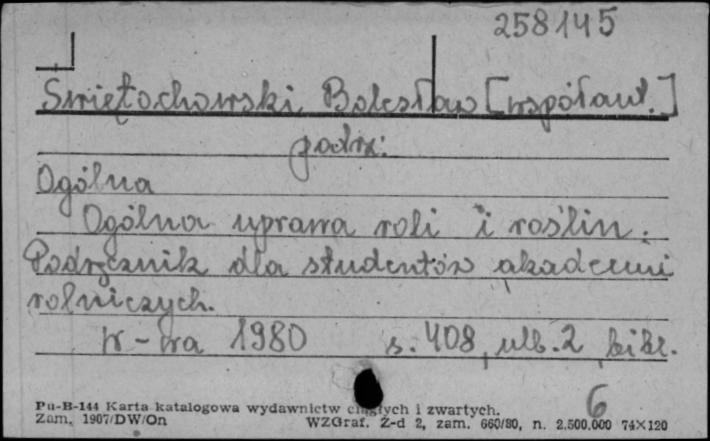 258145
Świętochowski Bolesław [współaut.]
podrz:
Ogólna
Ogólna uprawa roli i roślin.
Podręcznik dla studentów akademii
rolniczych.
W-wa 1980 s. 408, ulb. 2, bibl.
6
Pu-B-144 Karta katalogowa wydawnictw ciągłych i zwartych.
Zam. 1907/DW/On WZGraf. Z-d 2, zam. 660/80, n. 2.500.000 74×120